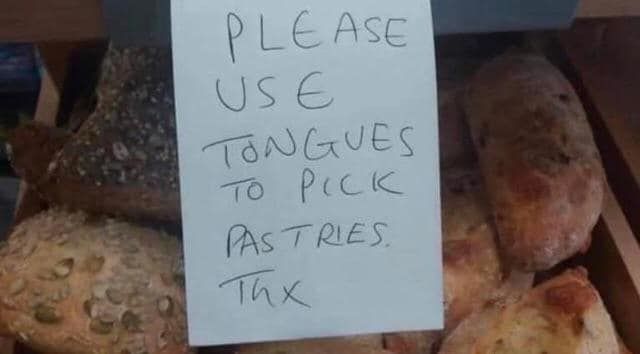 PLEASE
USE
TONGUES
TO PICK
PASTRIES.
Thx